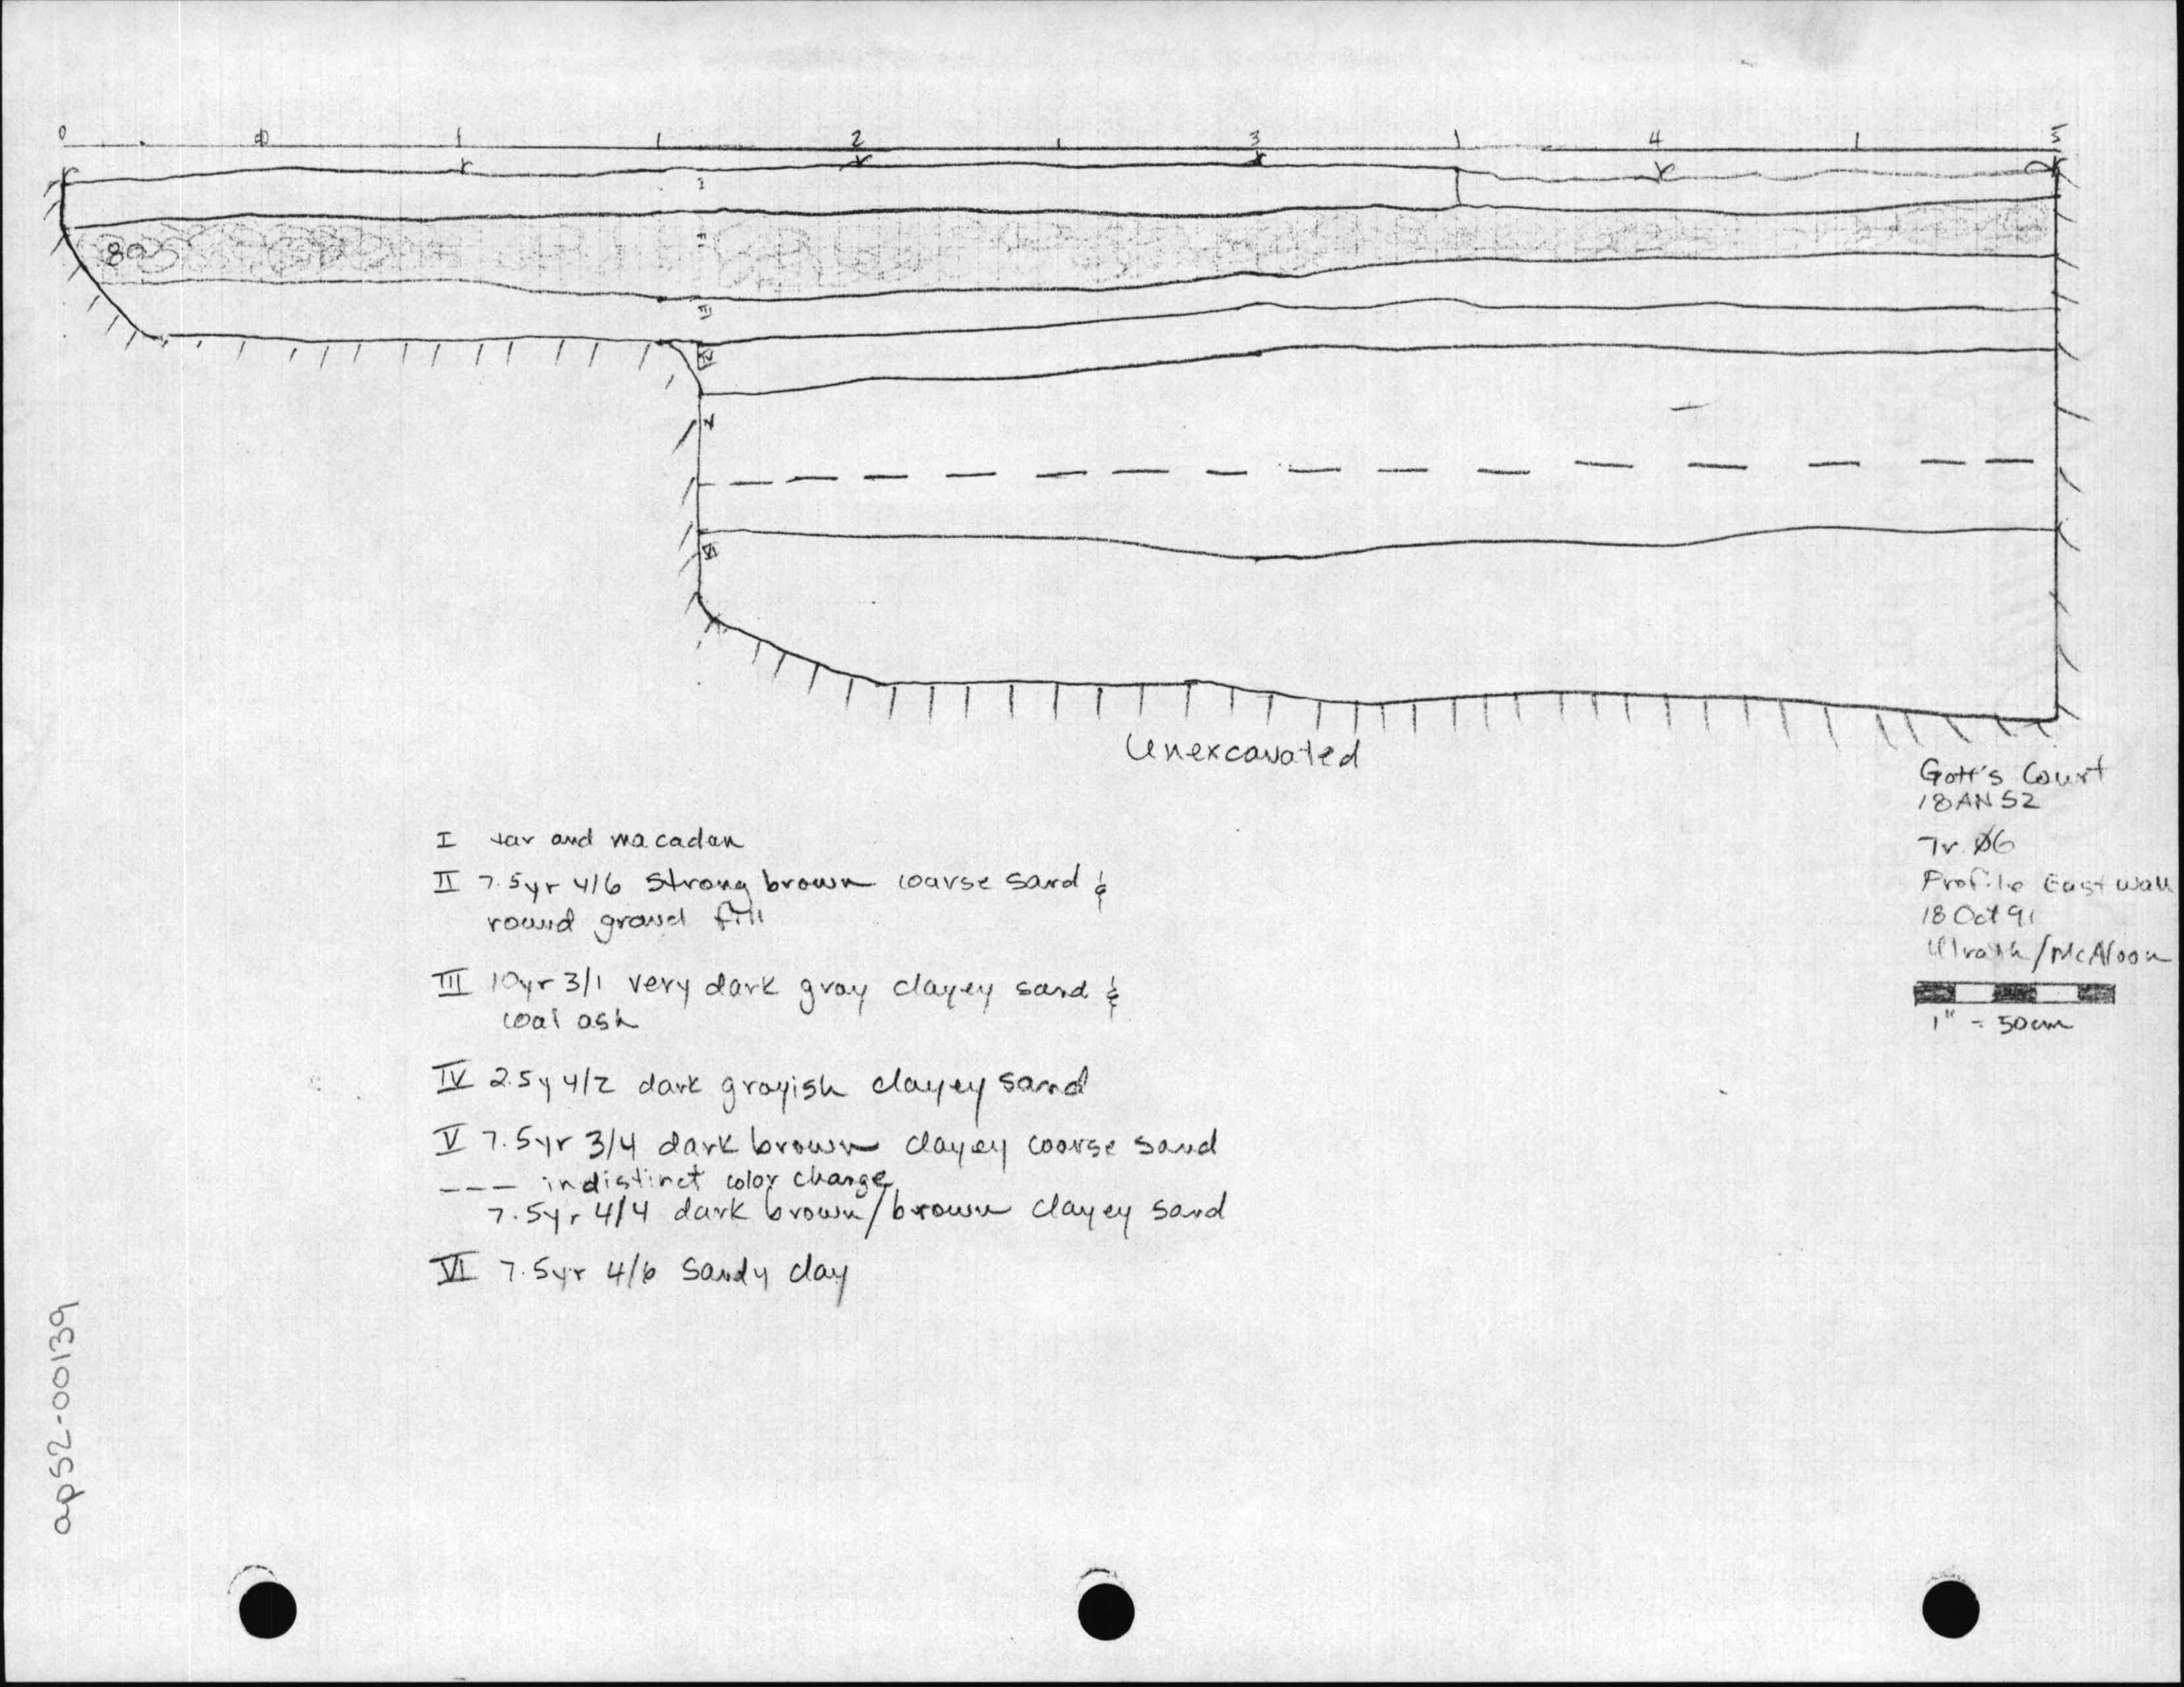 0 1 2 3 4 5
I
II
III
IV
V
VI
Unexcavated
Gott's Court
18AN52
Tr. Ø6
Profile East Wall
18 Oct 91
/McAloon
1" = 50cm
I tar and macadam
II 7.5yr 4/6 strong brown coarse sand &
round gravel fill
III 10yr 3/1 very dark gray clayey sand &
coal ash
IV 2.5y 4/2 dark grayish clayey sand
V 7.5yr 3/4 dark brown clayey coarse sand
--- indistinct color change
7.5yr 4/4 dark brown/brown clayey sand
VI 7.5yr 4/6 sandy clay
ap52-00139